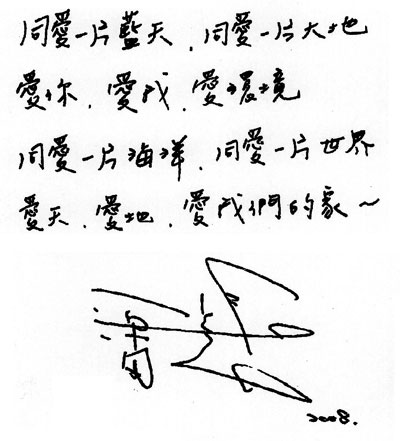 同愛一片藍天．同愛一片大地
愛你．愛我．愛環境
同愛一片海洋．同愛一片世界
愛天．愛地．愛我們的家～
2008.